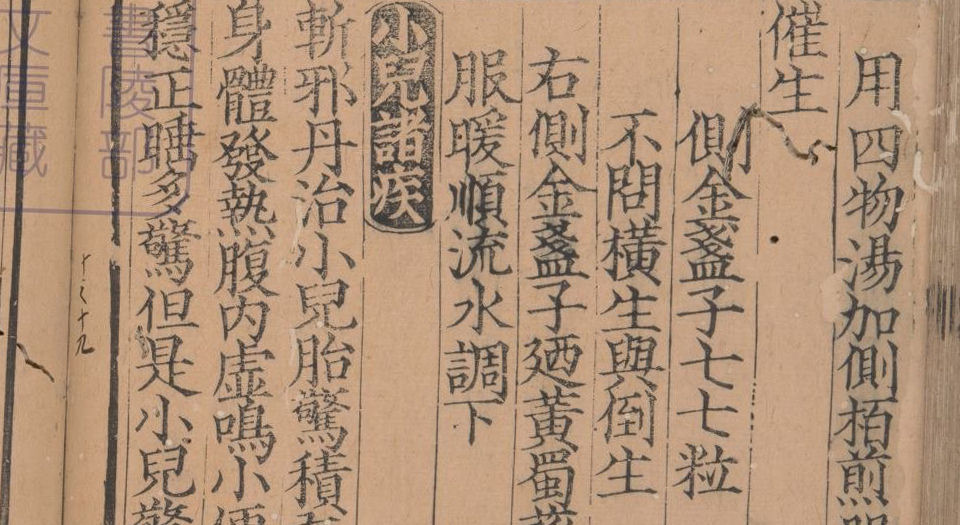 用四物湯加側栢煎服
催生
側金盞子七七粒
不問橫生與倒生
右側金盞子廼黃蜀葵
服暖順流水調下
小兒諸疾
斬邪丹治小兒胎驚積
身體發熱腹内虛鳴小便
穩正睡多驚但是小兒驚
十之十九
書陵部
文亘藏